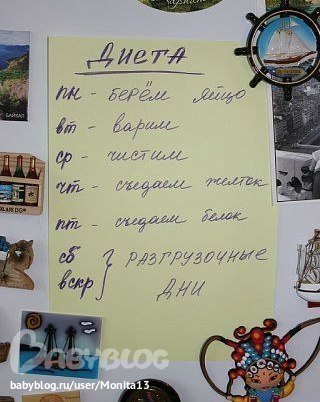 ДИЕТА
пн - берём яйцо
вт - варим
ср - чистим
чт - съедаем желток
пт - съедаем белок
сб } РАЗГРУЗОЧНЫЕ
вскр } ДНИ
БАЙКАЛ
BABYBLOG
babyblog.ru/user/Monita13